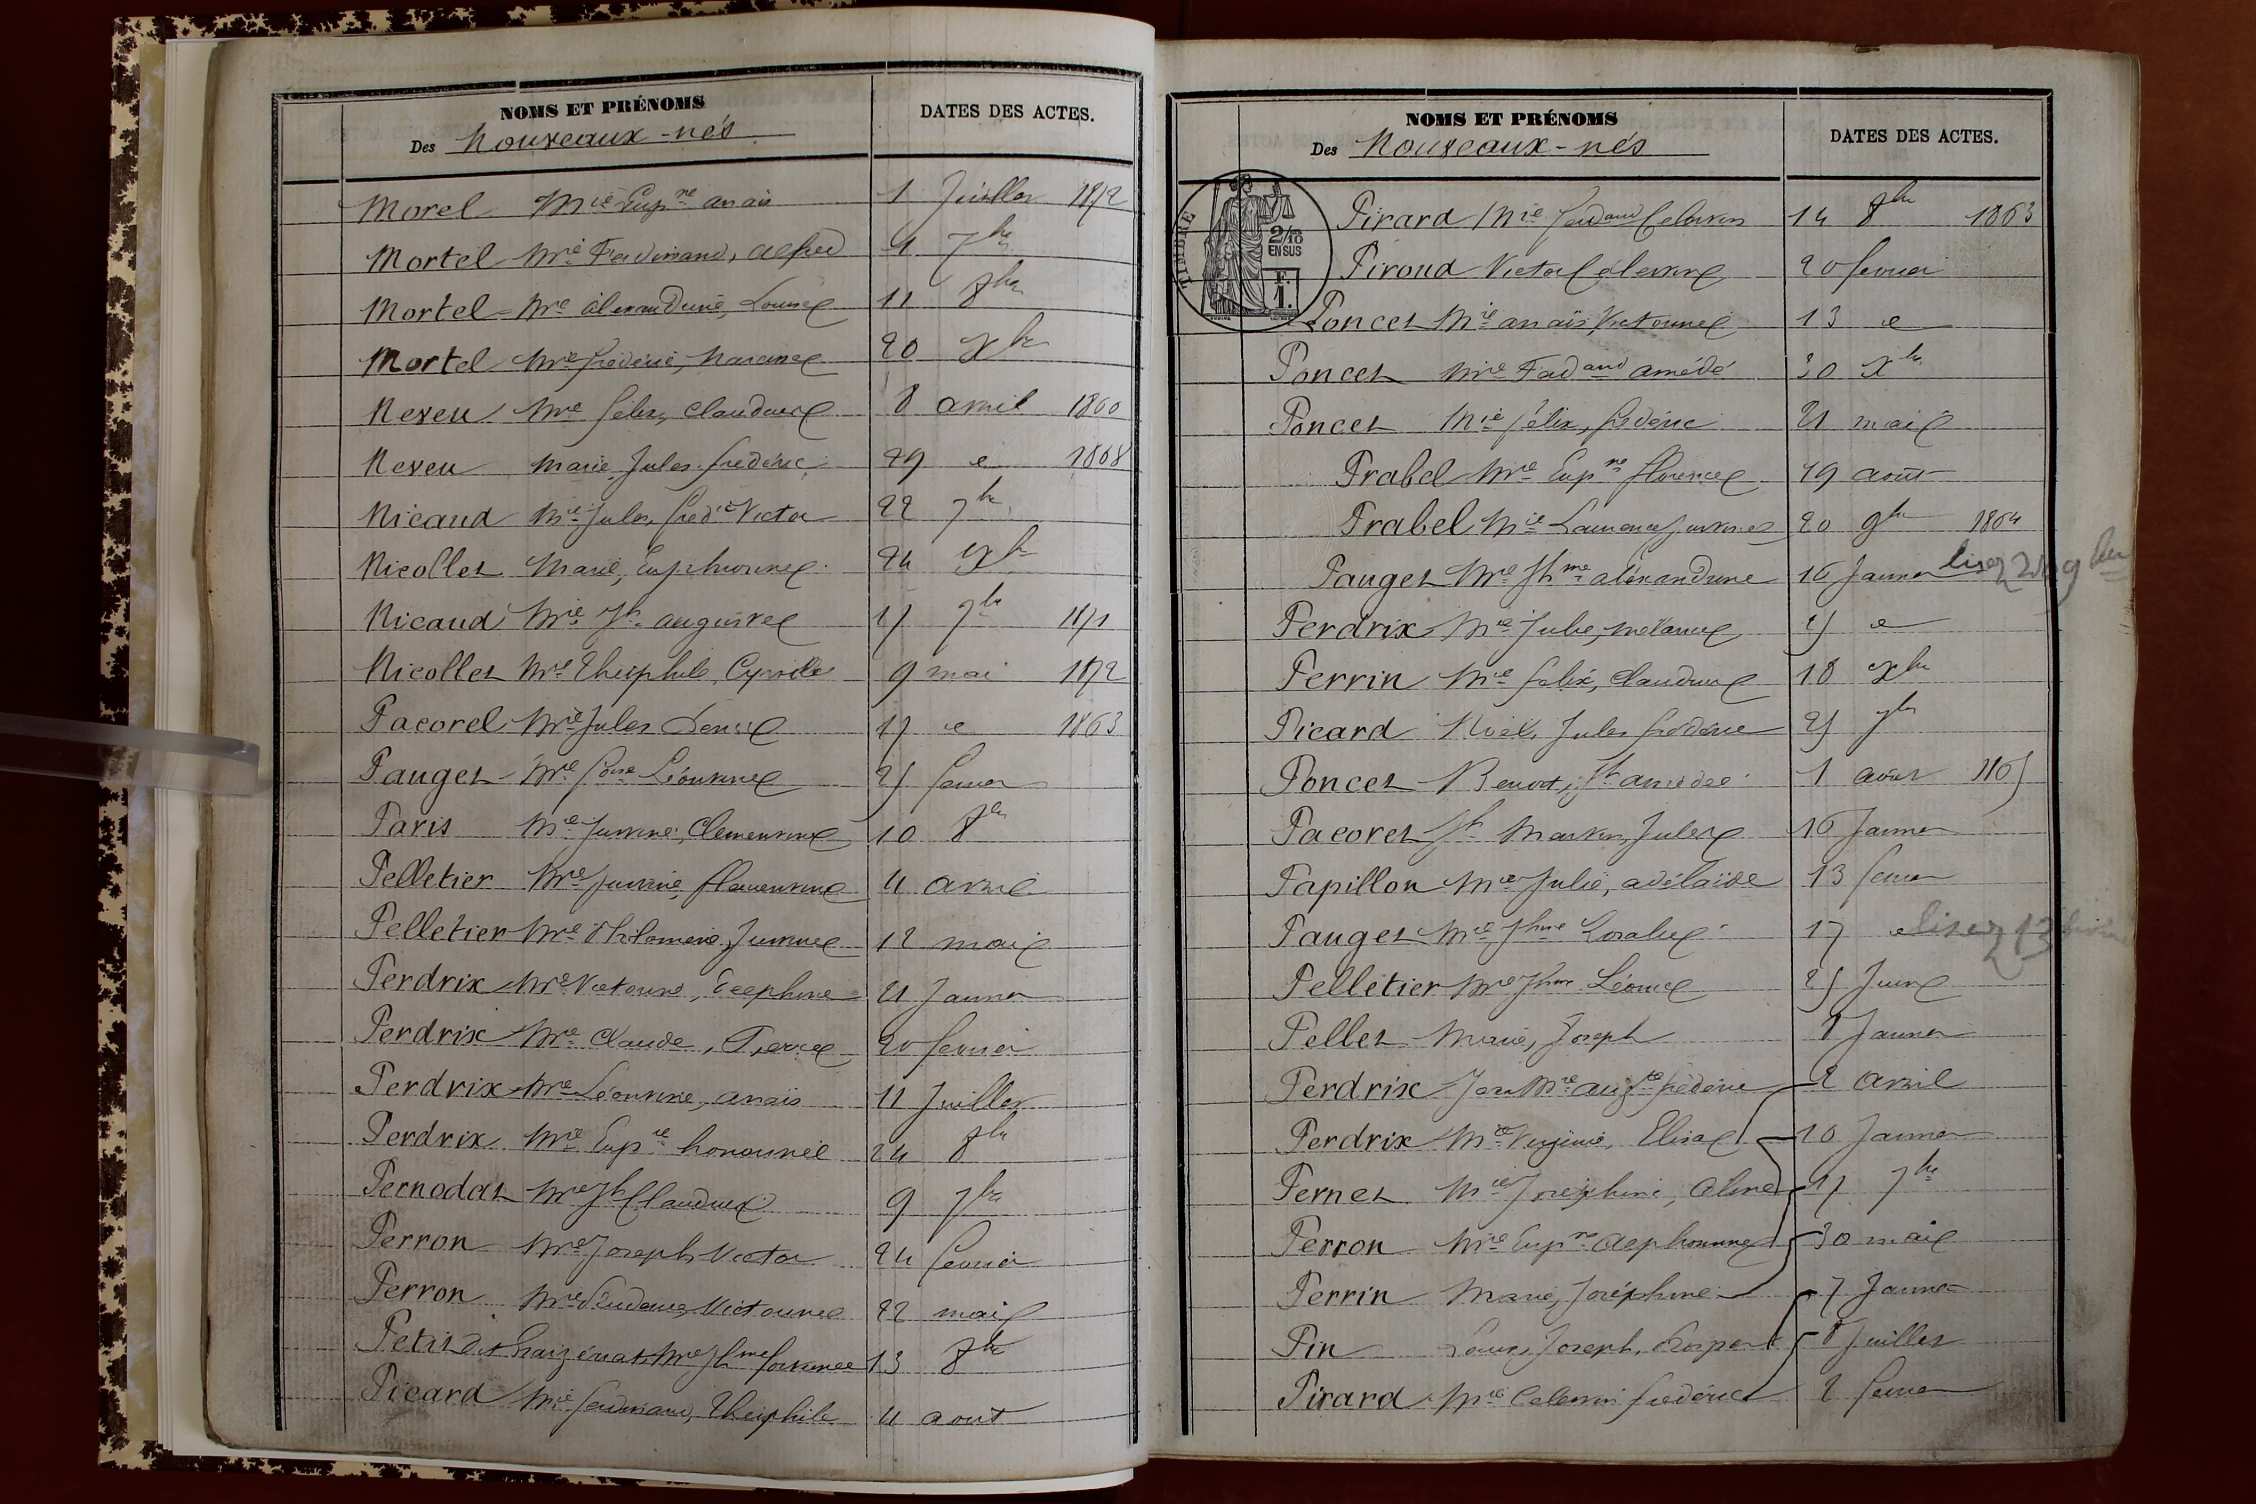 NOMS ET PRÉNOMS
DATES DES ACTES.
Des Nouveaux-nés
Morel Mie Eupne anaïs 1 Juillet 1872
Mortel Mie Ferdinand, alfred 4 7bre
Mortel Mie alexandrine, Louise 11 8bre
Mortel Mie frédéric, 20 Xbre
Neveu Mie félix, Claudine 8 avril 1860
Neveu Marie Jules frédéric 29 e 1868
Nicaud Mie Jules, fredic Victor 22 7bre
Nicollet Marie, Euphrosine 24 Xbre
Nicaud Mie Jh augustine 17 9bre 1871
Nicollet Mie Théophile, Cyrille 9 mai 1872
Pacorel Mie Jules Denis 17 e 1863
Pauget Mie Léontine 25 fevrier
Paris Mie Justine, Clementine 10 8bre
Pelletier Mie Justine, 4 avril
Pelletier Mie Philomene, Justine 12 mai
Perdrix Mie Victorine, Delphine 21 Janvier
Perdrix Mie Claude, Pierre 20 fevrier
Perdrix Mie Léontine, anaïs 11 Juillet
Perdrix Mie Eupie honorine 24 8bre
Pernodat Mie Jh Claudine 9 7bre
Perron Mie Joseph, Victor 24 fevrier
Perron Mie Victorine 22 mai
Petit dit Mie Jhine 13 8bre
Picard Mie ferdinand, Théophile 4 aout
NOMS ET PRÉNOMS
DATES DES ACTES.
Des Nouveaux-nés
TIMBRE
2/10
EN SUS
F.
1.
Pirard Mie ferdand Celestin 14 8bre 1863
Piroud Victor Célestine 20 fevrier
Poncet Mie anaïs Victorine 13 e
Poncet Mie Ferdand amédé 30 Xbre
Poncet Mie félix, frédéric 21 mai
Prabel Mie Eupne florence 19 août
Prabel Mie Laurence Justine 20 9bre 1864
Pauget Mie Jhme aléxandrine 16 Janvier lisez 9bre
Perdrix Mie Julie, mélanie 25 e
Perrin Mie félix, Claudine 18 Xbre
Picard Noël, Jules frédéric 25 7bre
Poncet Benoit, Jh amédée 1 août 1865
Pacoret Jh Marten, Jules 16 Janvier
Papillon Mie Julie, adélaïde 13 fevrier
Pauget Mie Jhine Rosalie 17 e lisez 13
Pelletier Mie Jhine Léonie 25 Juin
Pellet Marie, Joseph 8 Janvier
Perdrix Jean Mie augte frédéric 2 avril
Perdrix Mie Virginie, Elisa 10 Janvier
Pernet Mie Joséphine, aline 17 7bre
Perron Mie Eupne alphonsine 30 mai
Perrin Marie, Joséphine 7 Janvier
Pin Louis Joseph, Prosper 8 Juillet
Pirard Mie Celestin frédéric 2 fevrier